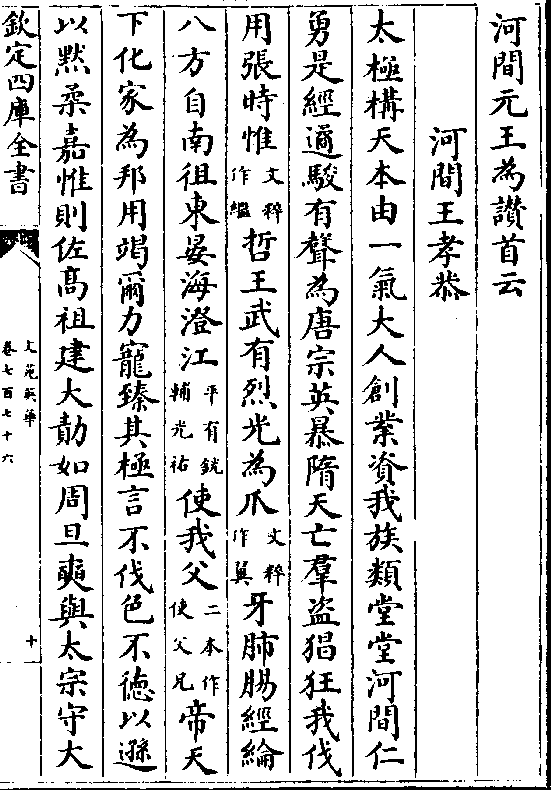 河間元王為讃首云
河間王孝恭
太極構天本由一氣大人創業資我族類堂堂河間仁
勇是經遹駿有聲為唐宗英暴隋天亡羣盜猖狂我伐
用張時惟文粹作繼哲王武有烈光為爪文粹作翼牙肺腸經綸
八方自南徂東晏海澄江平有銑輔光祐使我父二本作使父兄帝天
下化家為邦用竭爾力寵臻其極言不伐色不德以遜
以黙柔嘉惟則佐髙祖建大勛如周旦奭與太宗守大
欽定四庫全書
文苑英華
卷七百七十六
十